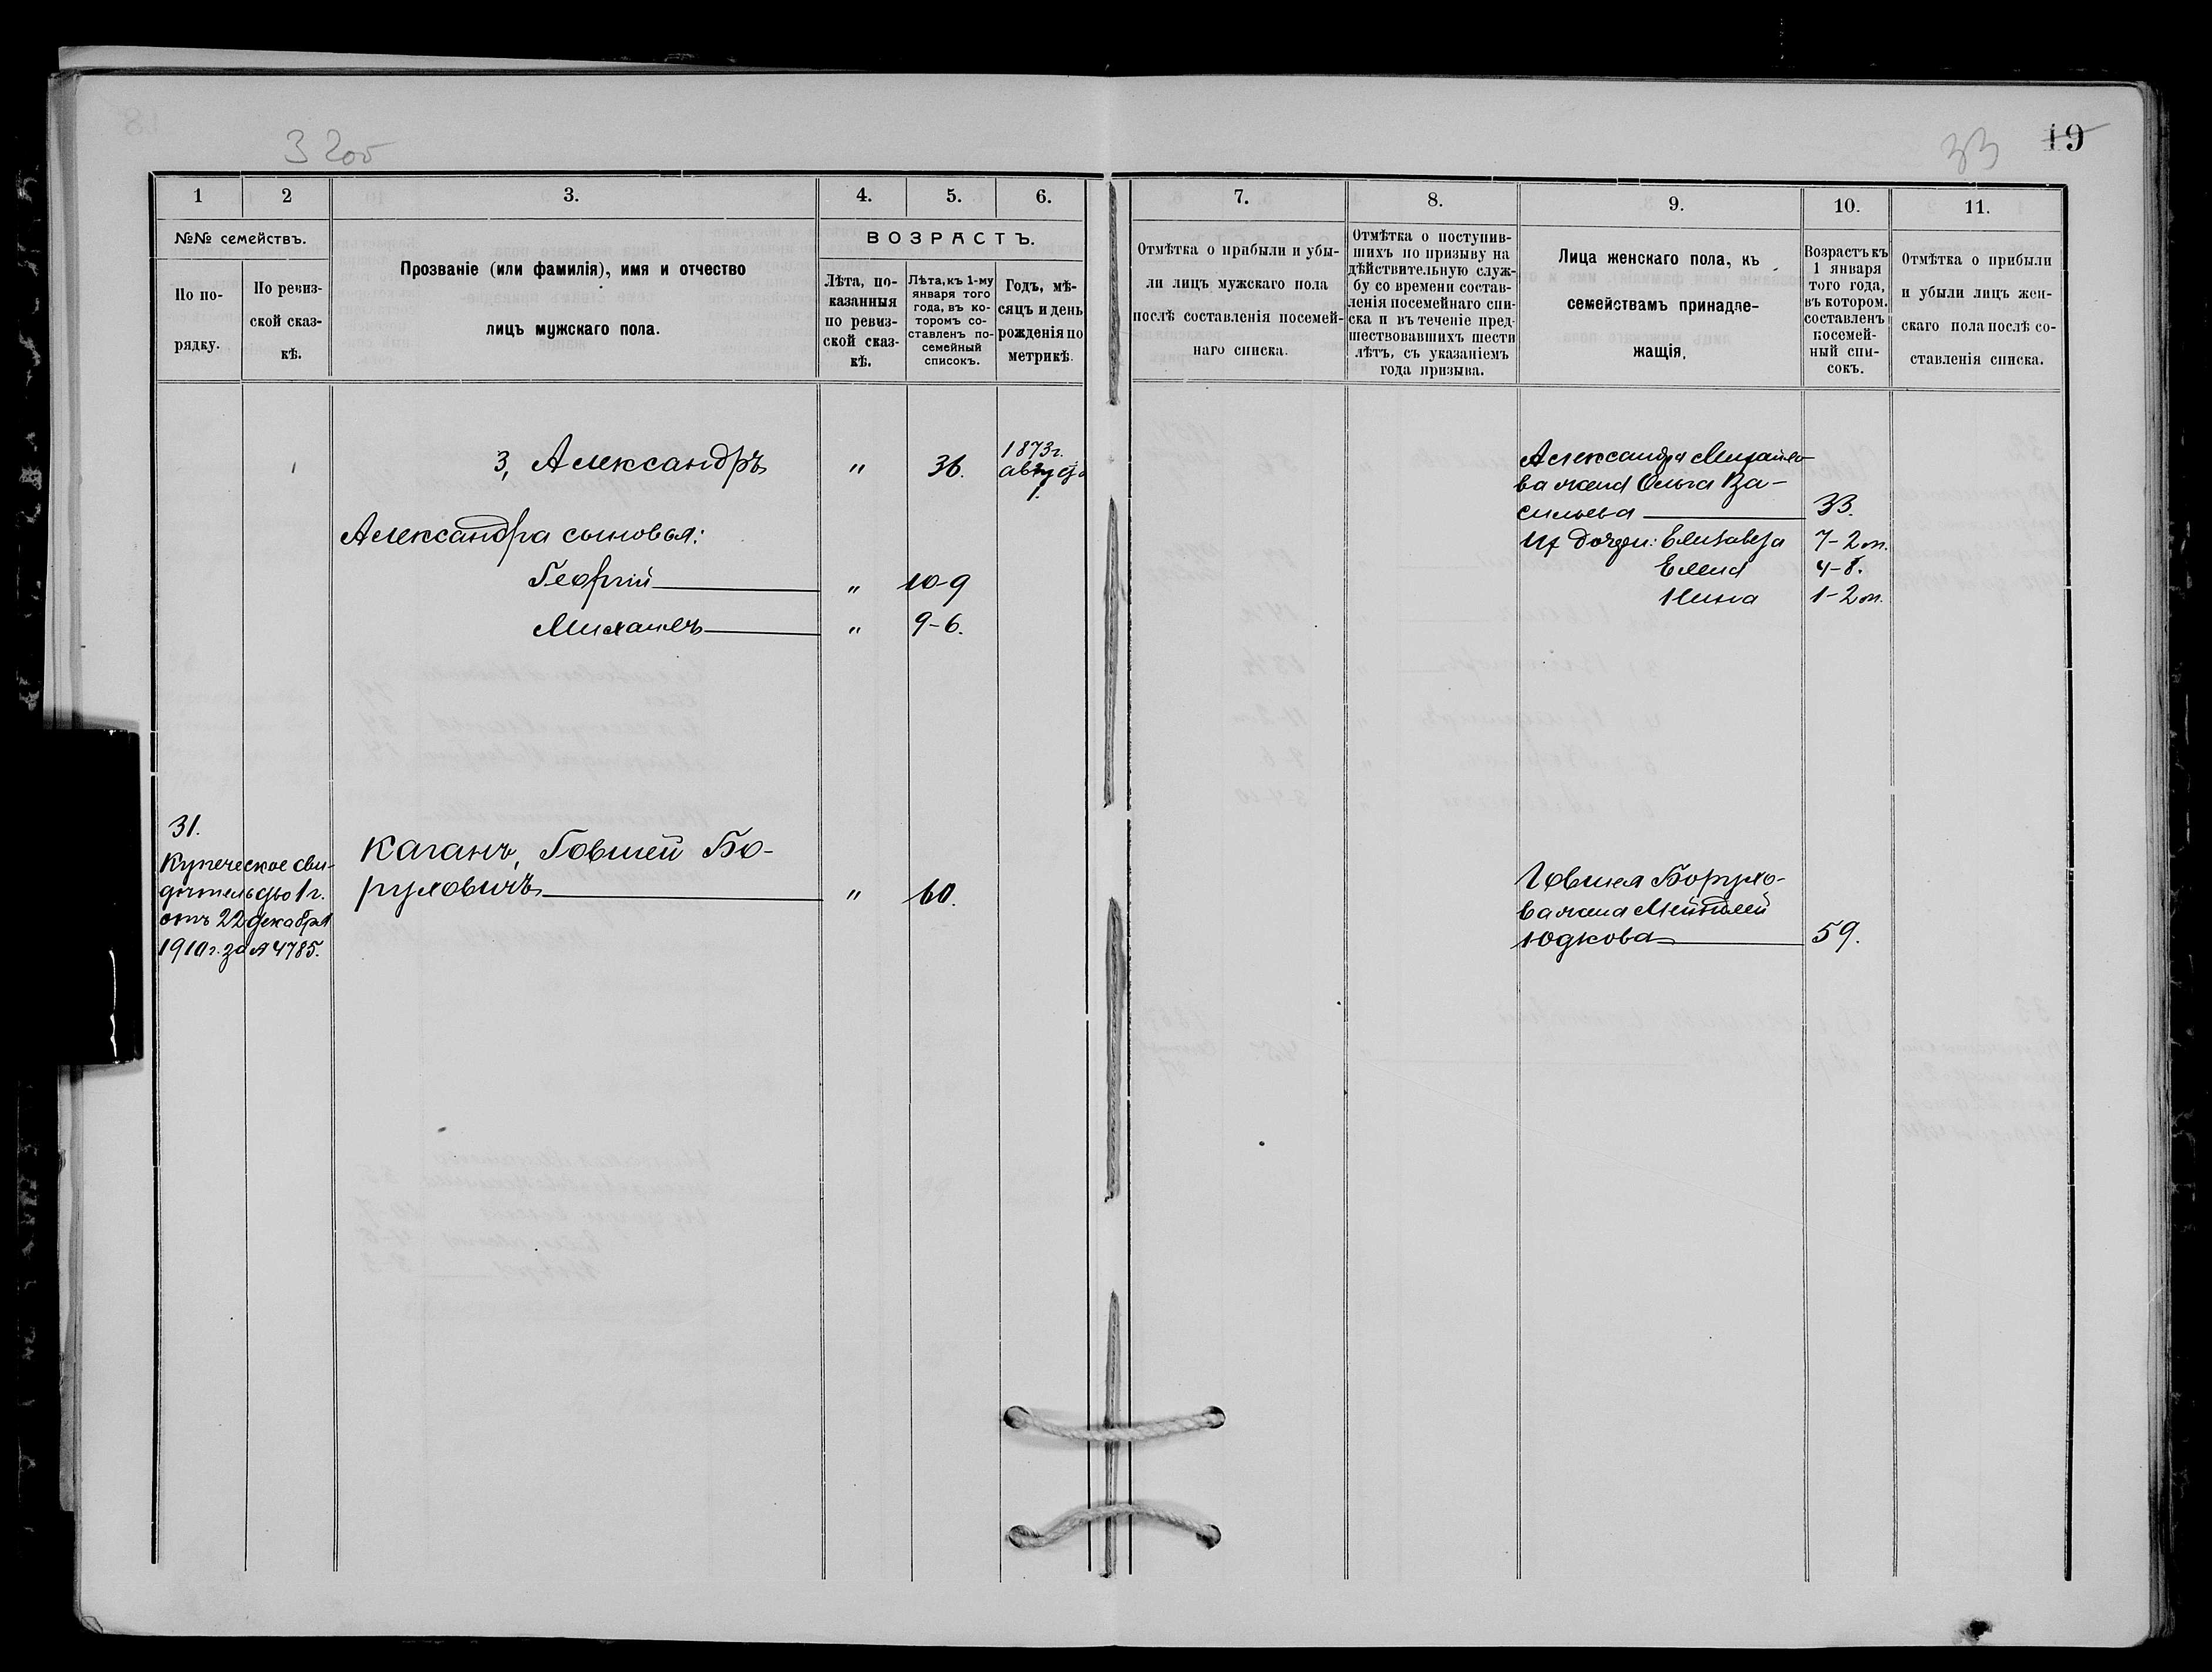 19
33
1
2
3.
4.
5.
6.
7.
8.
9.
10.
11.
№№ семействъ.
По по-
рядку.
По ревиз-
ской сказ-
кѣ.
Прозваніе (или фамилія), имя и отчество
лицъ мужскаго пола.
ВОЗРАСТЪ.
Лѣта, по-
казанныя
по ревиз-
ской сказ-
кѣ.
Лѣта, къ 1-му
января того
года, въ ко-
торомъ со-
ставленъ по-
семейный
списокъ.
Годъ, мѣ-
сяцъ и день
рожденія по
метрикѣ.
Отмѣтка о прибыли и убы-
ли лицъ мужскаго пола
послѣ составленія посемей-
наго списка.
Отмѣтка о поступив-
шихъ по призыву на
дѣйствительную служ-
бу со времени состав-
ленія посемейнаго спи-
ска и въ теченіе пред-
шествовавшихъ шести
лѣтъ, съ указаніемъ
года призыва.
Лица женскаго пола, къ
семействамъ принадле-
жащія.
Возрастъ къ
1 января
того года,
въ котором.
составленъ
посемей-
ный спи-
сокъ.
Отмѣтка о прибыли
и убыли лицъ жен-
скаго пола послѣ со-
ставленія списка.
3, Александръ " 36. 1873г.
августа
1.
Александра сыновья:
Георгій " 10-9
Михаилъ " 9-6.
Александра Михайло-
ва жена Ольга Ва-
сильева 33.
Их дочери: Елизавета 7-2 м.
Елена 4-8.
Нина 1-2 м.
31.
Купеческое сви-
дѣтельство 1 г.
отъ 22 декабря
1910 г. за № 4785.
Каганъ, Говшей Бо-
руховичъ " 60.
Говшея Борухо-
ва жена
Юдкова 59.